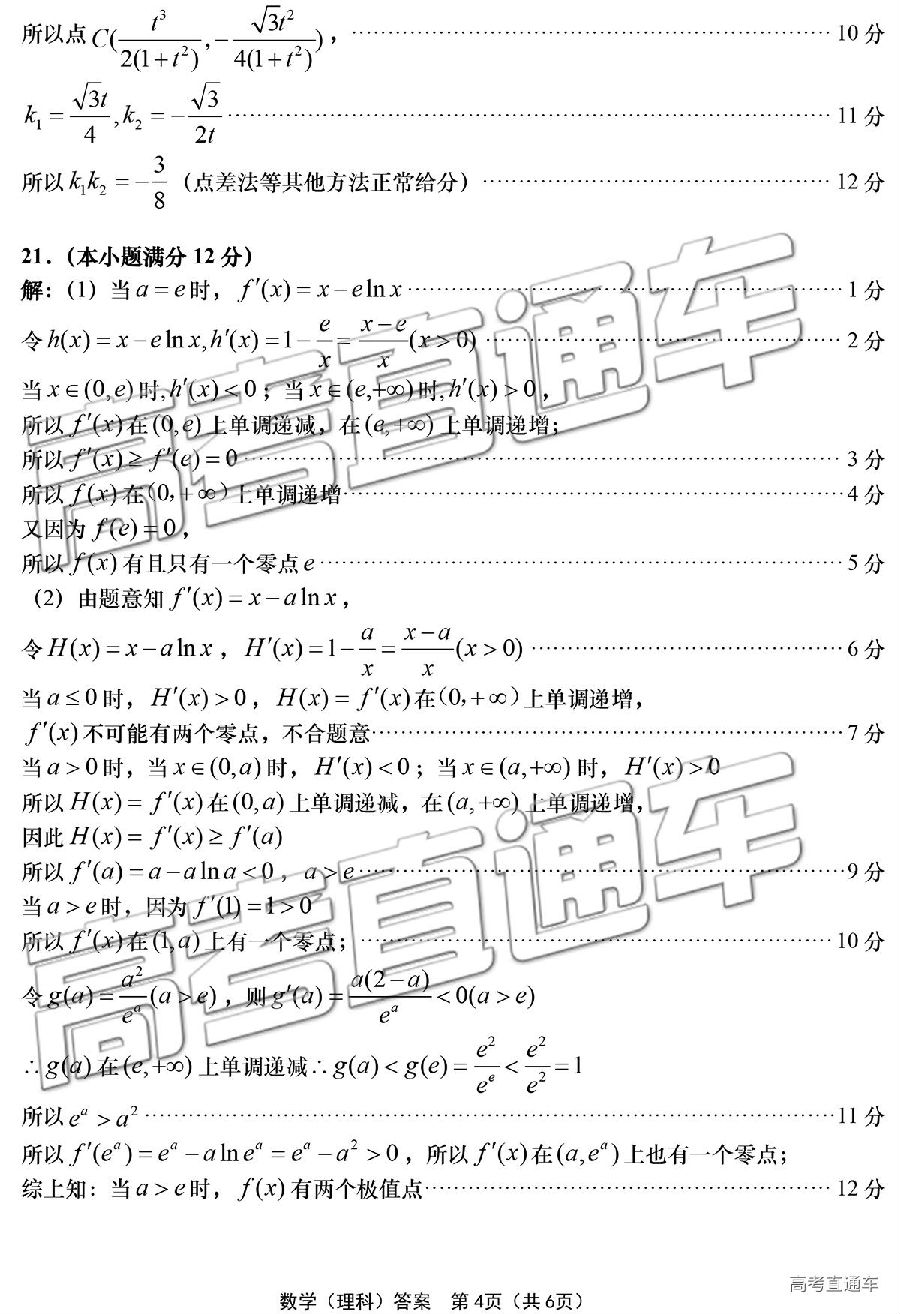 所以点 C(t³/(2(1+t²)), -√3t²/(4(1+t²))), ……10 分
k₁ = √3t/4, k₂ = -√3/(2t) ……11 分
所以 k₁k₂ = -3/8 (点差法等其他方法正常给分) ……12 分
21.(本小题满分 12 分)
解:(1) 当 a = e 时, f′(x) = x - e ln x ……1 分
令 h(x) = x - e ln x, h′(x) = 1 - e/x = (x-e)/x (x > 0) ……2 分
当 x ∈ (0, e) 时, h′(x) < 0 ; 当 x ∈ (e, +∞) 时, h′(x) > 0,
所以 f′(x) 在 (0, e) 上单调递减, 在 (e, +∞) 上单调递增;
所以 f′(x) ≥ f′(e) = 0 ……3 分
所以 f(x) 在 (0, +∞) 上单调递增 ……4 分
又因为 f(e) = 0,
所以 f(x) 有且只有一个零点 e ……5 分
(2) 由题意知 f′(x) = x - a ln x,
令 H(x) = x - a ln x, H′(x) = 1 - a/x = (x-a)/x (x > 0) ……6 分
当 a ≤ 0 时, H′(x) > 0, H(x) = f′(x) 在 (0, +∞) 上单调递增,
f′(x) 不可能有两个零点, 不合题意 ……7 分
当 a > 0 时, 当 x ∈ (0, a) 时, H′(x) < 0 ; 当 x ∈ (a, +∞) 时, H′(x) > 0
所以 H(x) = f′(x) 在 (0, a) 上单调递减, 在 (a, +∞) 上单调递增,
因此 H(x) = f′(x) ≥ f′(a)
所以 f′(a) = a - a ln a < 0, a > e ……9 分
当 a > e 时, 因为 f′(1) = 1 > 0
所以 f′(x) 在 (1, a) 上有一个零点; ……10 分
令 g(a) = a²/eᵃ (a > e), 则 g′(a) = a(2-a)/eᵃ < 0 (a > e)
∴ g(a) 在 (e, +∞) 上单调递减 ∴ g(a) < g(e) = e²/eᵉ < e²/e² = 1
所以 eᵃ > a² ……11 分
所以 f′(eᵃ) = eᵃ - a ln eᵃ = eᵃ - a² > 0, 所以 f′(x) 在 (a, eᵃ) 上也有一个零点;
综上知: 当 a > e 时, f(x) 有两个极值点 ……12 分
高考直通车
高考直通车
高考直通车
数学(理科)答案 第4页(共6页)